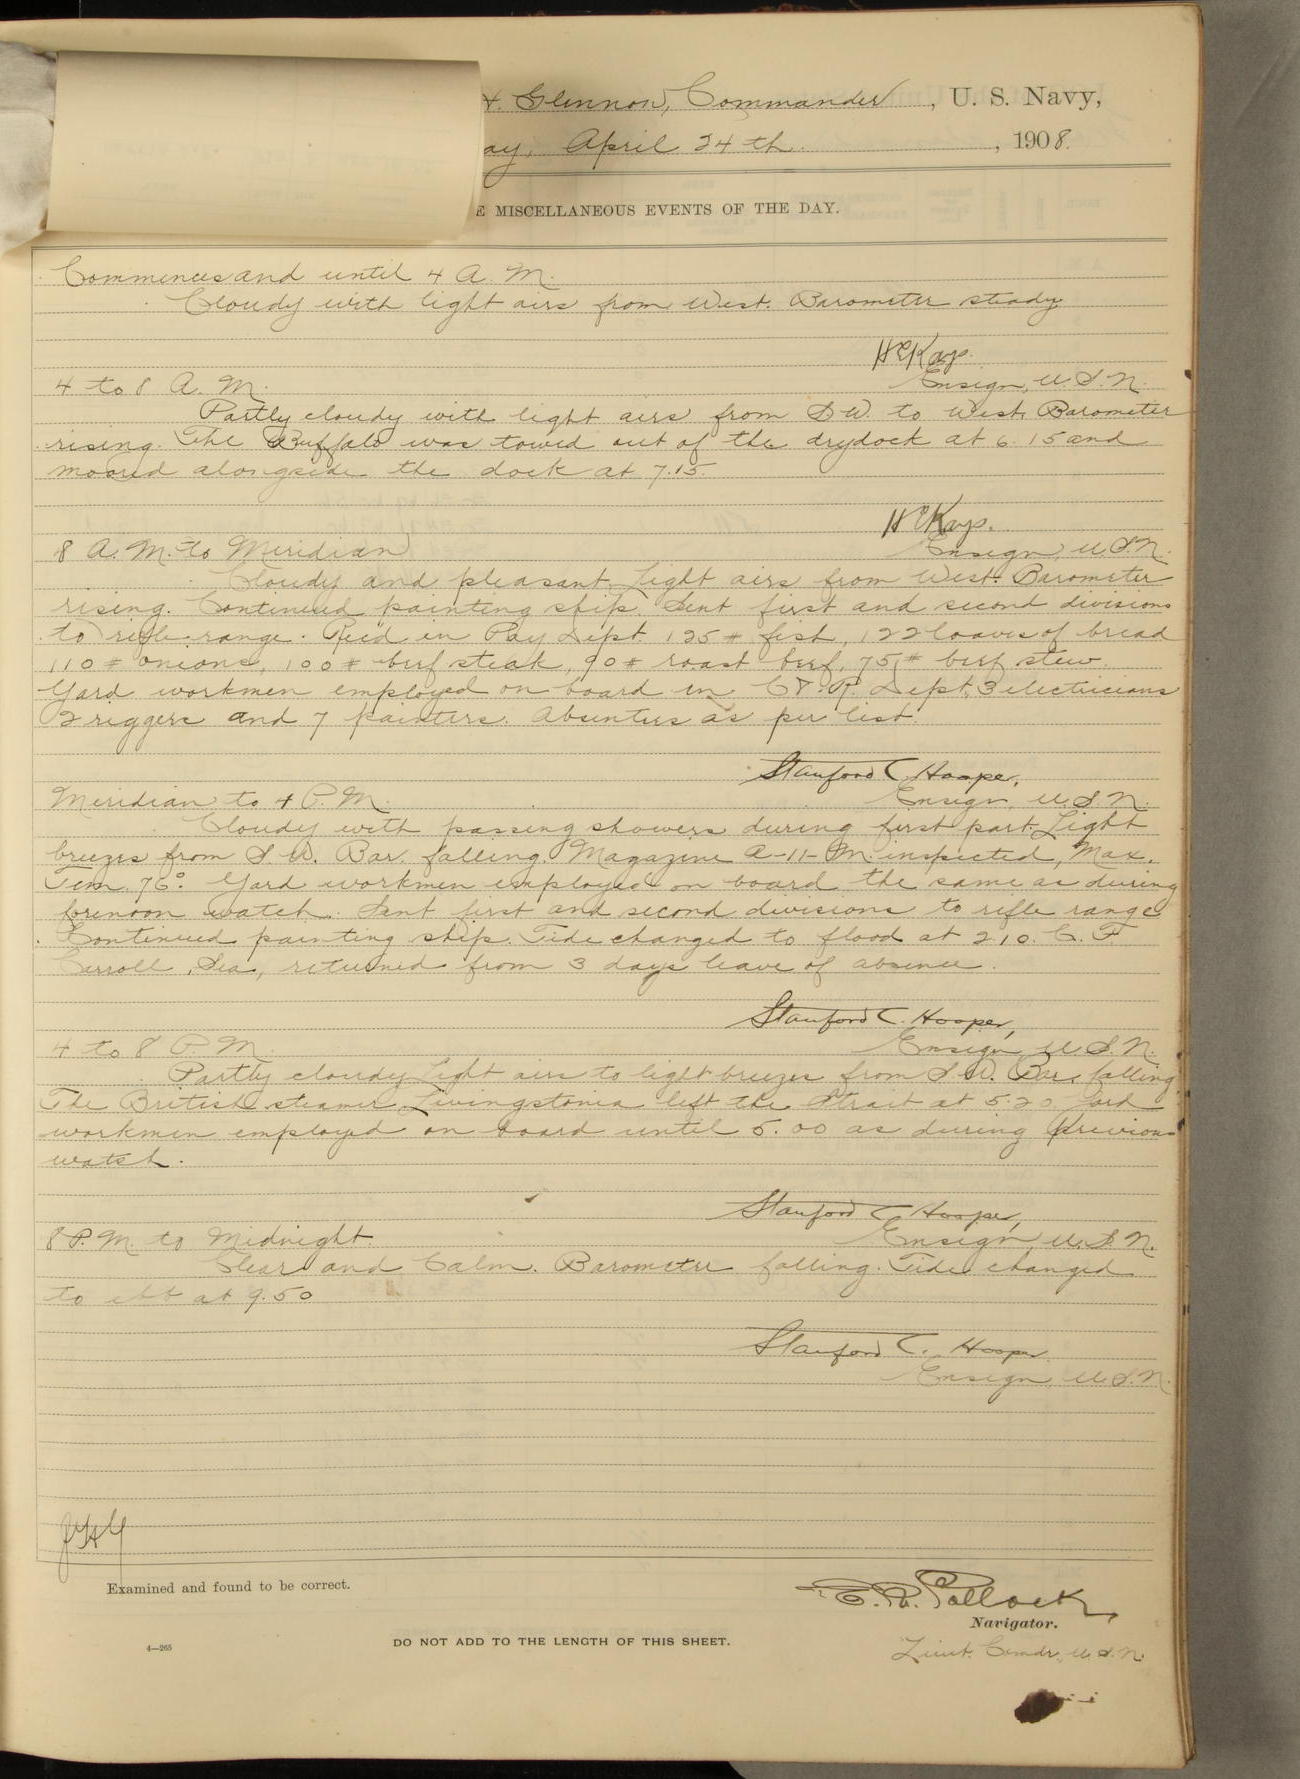 H. Glennon, Commander, U. S. Navy,
ay, April 24th., 1908.
E MISCELLANEOUS EVENTS OF THE DAY.
Commences and until 4 A. M.
Cloudy with light airs from West. Barometer steady.
H E Kays.
4 to 8 A. M. Ensign, U. S. N.
Partly cloudy with light airs from S. W. to West. Barometer
rising. The Buffalo was towed out of the drydock at 6.15 and
moored alongside the dock at 7.15.
H E Kays.
8 A. M. to Meridian Ensign, U. S. N.
Cloudy and pleasant. Light airs from West. Barometer
rising. Continued painting ship. Sent first and second divisions
to rifle range. Rec'd in Pay Dept. 125 # fish, 122 loaves of bread
110 # onions, 100 # beef steak, 90 # roast beef, 75 # beef stew.
Yard workmen employed on board in C & R. Dept, 3 electricians
2 riggers and 7 painters. Absentees as per list.
Stanford C. Hooper,
Meridian to 4 P. M. Ensign, U. S. N.
Cloudy with passing showers during first part. Light
breezes from S. W. Bar. falling. Magazine A-11-M. inspected, Max.
Tem. 76°. Yard workmen employed on board the same as during
forenoon watch. Sent first and second divisions to rifle range
Continued painting ship. Tide changed to flood at 2.10. C. F.
Carroll, Sea, returned from 3 days leave of absence.
Stanford C. Hooper,
4 to 8 P. M. Ensign U. S. N.
Partly cloudy Light airs to light breezes from S. W. Bar. falling.
The British steamer Livingstonia left the Strait at 5.20 Yard
workmen employed on board until 5.00 as during previous
watch.
Stanford C Hooper,
8 P. M. to Midnight. Ensign, U. S. N.
Clear and Calm. Barometer falling. Tide changed
to ebb at 9.50
Stanford C. Hooper
Ensign, U. S. N.
Examined and found to be correct.
Pollock,
Navigator.
4—265 DO NOT ADD TO THE LENGTH OF THIS SHEET.
Lieut. Comdr., U. S. N.